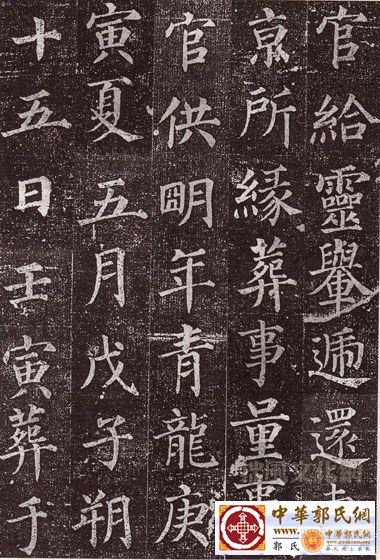 官給靈轝遞還
亰所緣葬事量事
官供朙年青龍庚
寅夏五月戊子朔
十五日壬寅葬于
中華郭氏網
郭氏
中華郭氏網